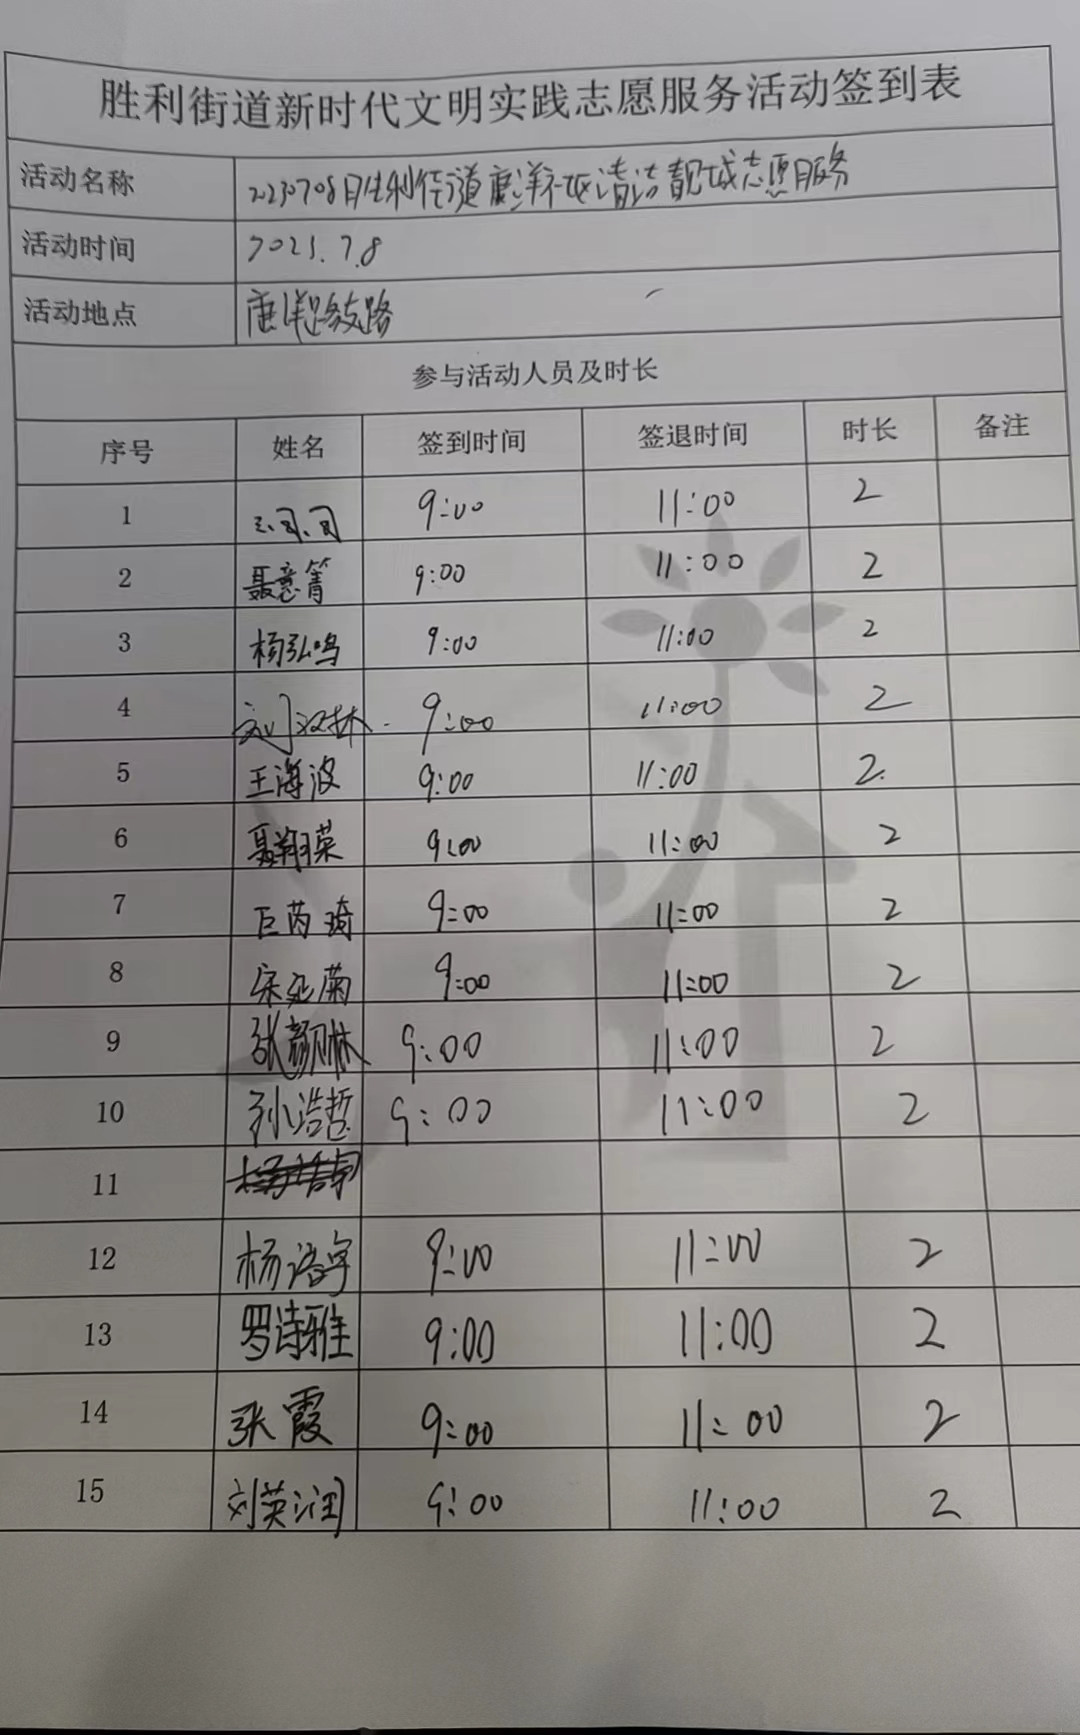 胜利街道新时代文明实践志愿服务活动签到表
活动名称 20230708胜利街道 清洁靓城志愿服务
活动时间 2023.7.8
活动地点 支路
参与活动人员及时长
序号 姓名 签到时间 签退时间 时长 备注
1 9:00 11:00 2
2 聂意箐 9:00 11:00 2
3 杨弘鸣 9:00 11:00 2
4 刘汉林 9:00 11:00 2
5 王海波 9:00 11:00 2
6 聂翔荣 9:00 11:00 2
7 巨芮琦 9:00 11:00 2
8 9:00 11:00 2
9 9:00 11:00 2
10 孙浩哲 9:00 11:00 2
11
12 杨浩宇 9:00 11:00 2
13 罗诗雅 9:00 11:00 2
14 张霞 9:00 11:00 2
15 刘英润 9:00 11:00 2